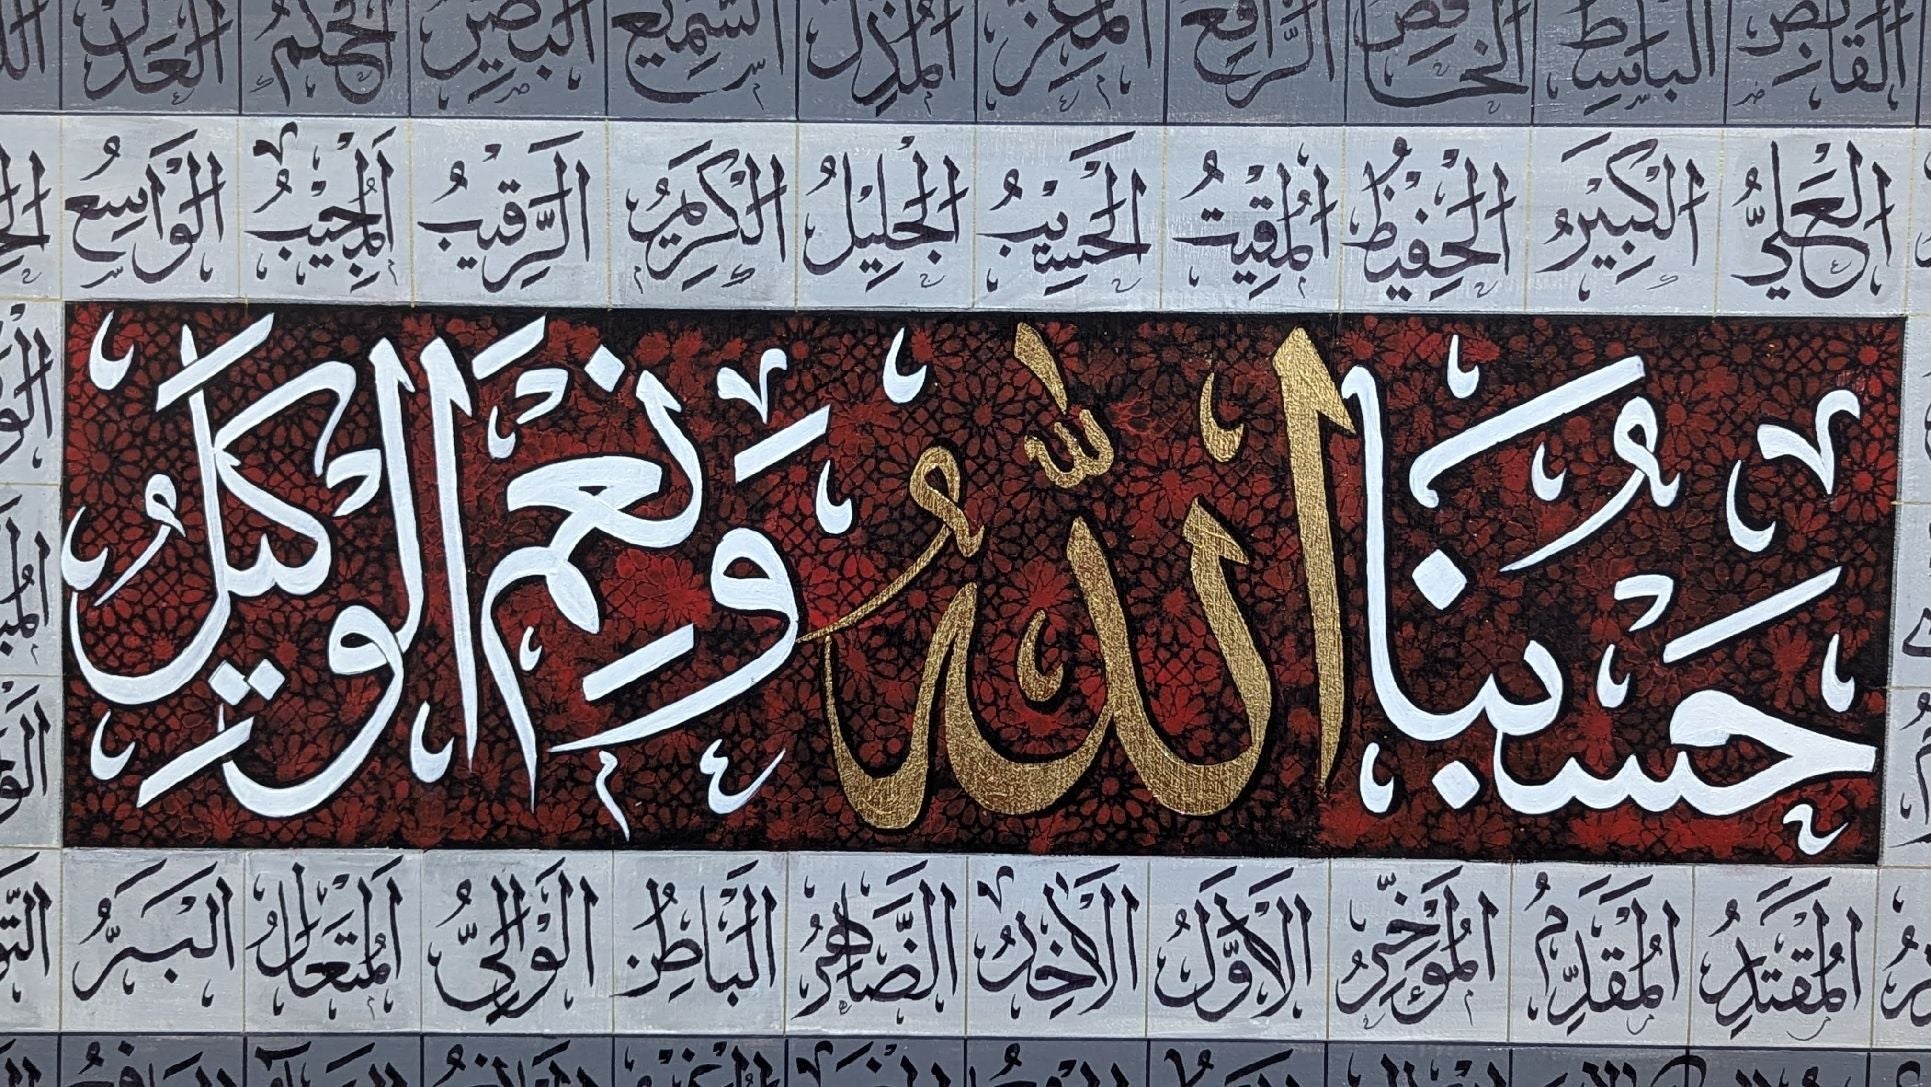 القَابِضُ البَاسِطُ الخَافِضُ الرَّافِعُ المُعِزُّ المُذِلُّ السَّمِيعُ البَصِيرُ الحَكَمُ العَدْلُ
الْعَلِيُّ الْكَبِيْرُ الْحَفِيْظُ الْمُقِيْتُ الْحَسِيْبُ الْجَلِيْلُ الْكَرِيْمُ الرَّقِيْبُ الْمُجِيْبُ الْوَاسِعُ
حَسْبُنَا اللّٰهُ وَنِعْمَ الْوَكِيْلُ
الْمُقْتَدِرُ الْمُقَدِّمُ الْمُؤَخِّرُ الْاَوَّلُ الْاٰخِرُ الضَّاهِرُ الْبَاطِنُ الْوَالِيُّ الْمُتَعَالُ الْبَرُّ